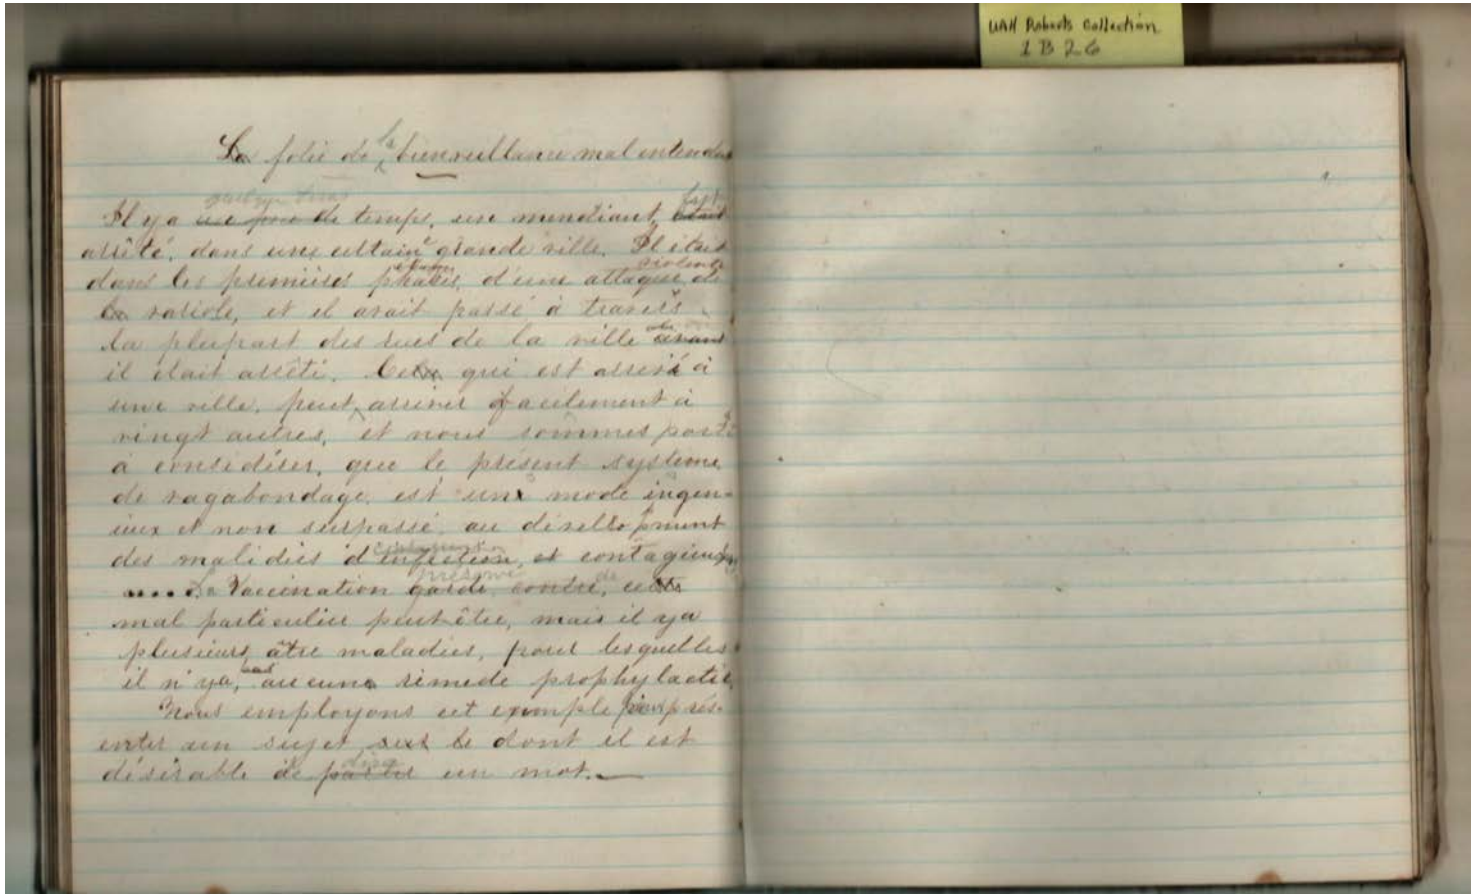 UAH Roberts Collection
1B26
La folie de la bienveillance mal entendue
quelque
Il y a une peu de temps, un mendiant, était
arrêté, dans une certaine grande ville. Il était
violente
dans les premières phases, d'une attaque de
la variole, et il avait passé à travers
la plupart des rues de la ville avant
il était arrêté. Cela qui est arrivé à
une ville, peut arriver facilement à
vingt autres, et nous sommes portés
à considérer, que le présent système
de vagabondage, est une mode ingen-
ieux et non surpassé, au développment
des maladies d'infection, et contagieuses
préserve de
.... La Vaccination garde, contre, cette
mal particulier peut-être, mais il y a
plusieurs âtre maladies, pour lesquelles
il n'y a, aucune rimede prophylactic
Nous employons cet exemple pour prés-
enter un sujet, sur le dont il est
dire
désirable de parler un mot.